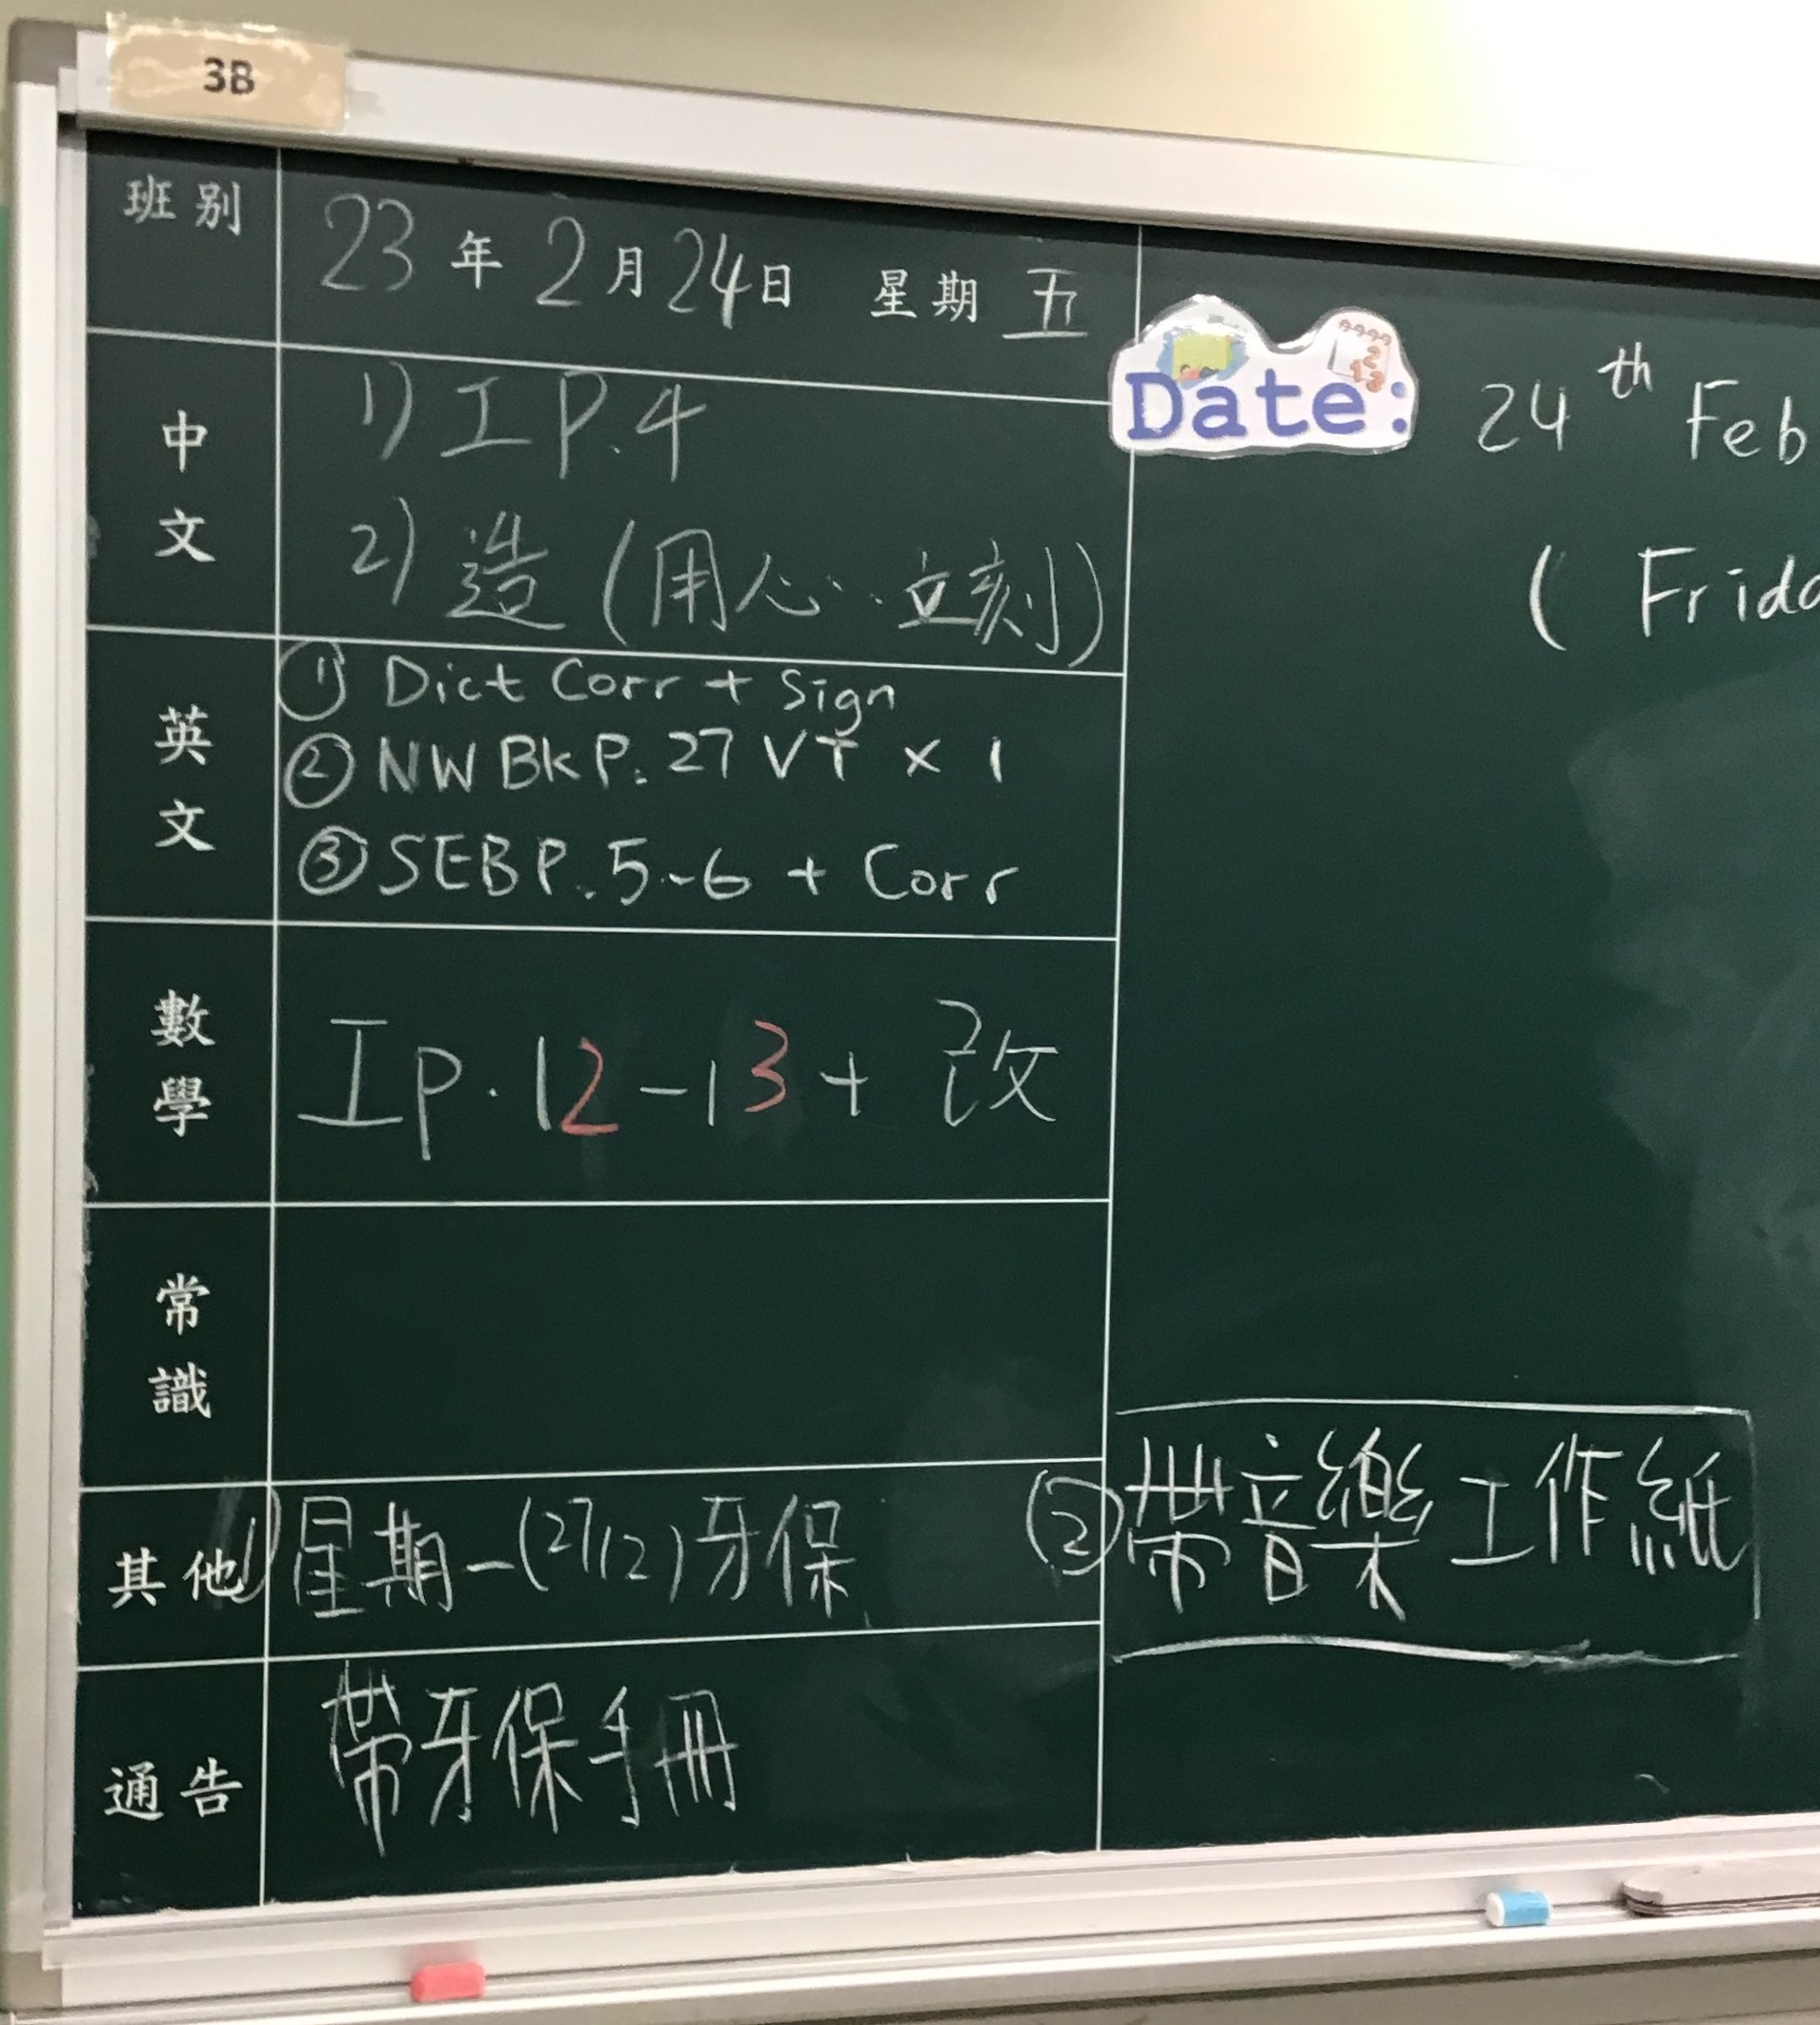 3B
班別
23年2月24日 星期五
Date: 24th Feb
(Frida
中文
1) 工 P.4
2) 造(用心…立刻)
英文
① Dict Corr + Sign
② NW Bk P. 27 VT × 1
③ SEB P. 5-6 + Corr
數學
工 p. 12-13 + 改
常識
其他
1) 星期一(27/2)牙保
② 帶音樂工作紙
通告
帶牙保手冊